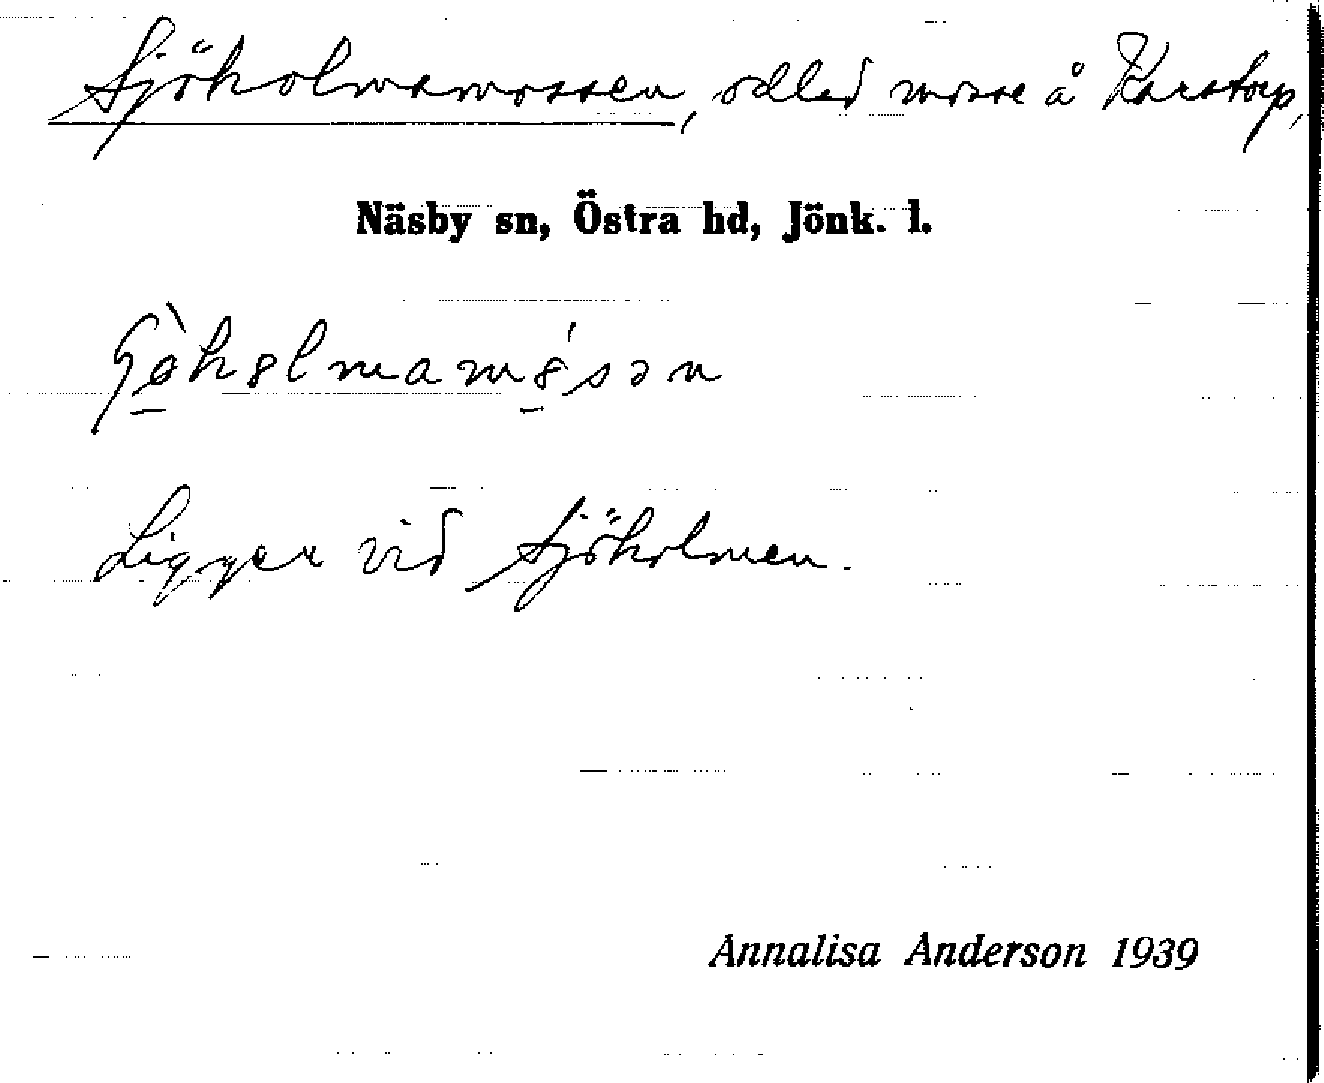 Sjöholmsmossen, odlad mosse å Karstorp,
Näsby sn, Östra hd, Jönk. l.
Ligger vid Sjöholmen.
Annalisa Anderson 1939